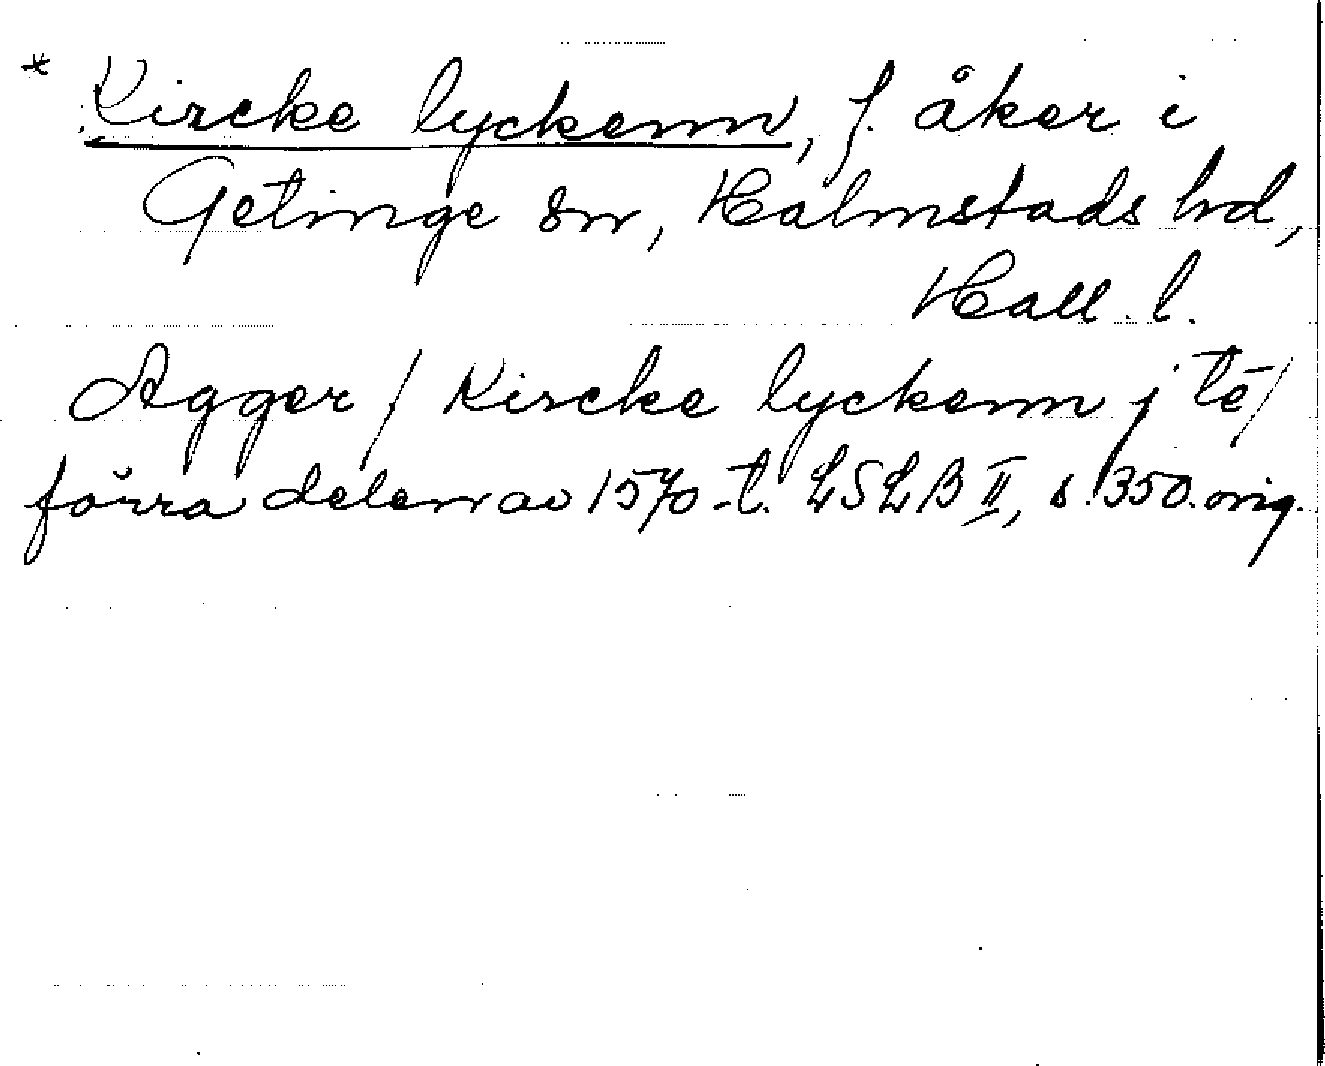 * Kircke lyckenn, f. åker i
Getinge sn, Halmstads hd,
Hall. l.
Agger / Kircke lyckenn j tē/
förra delen av 1570-t. LSLB II, s. 350. orig.